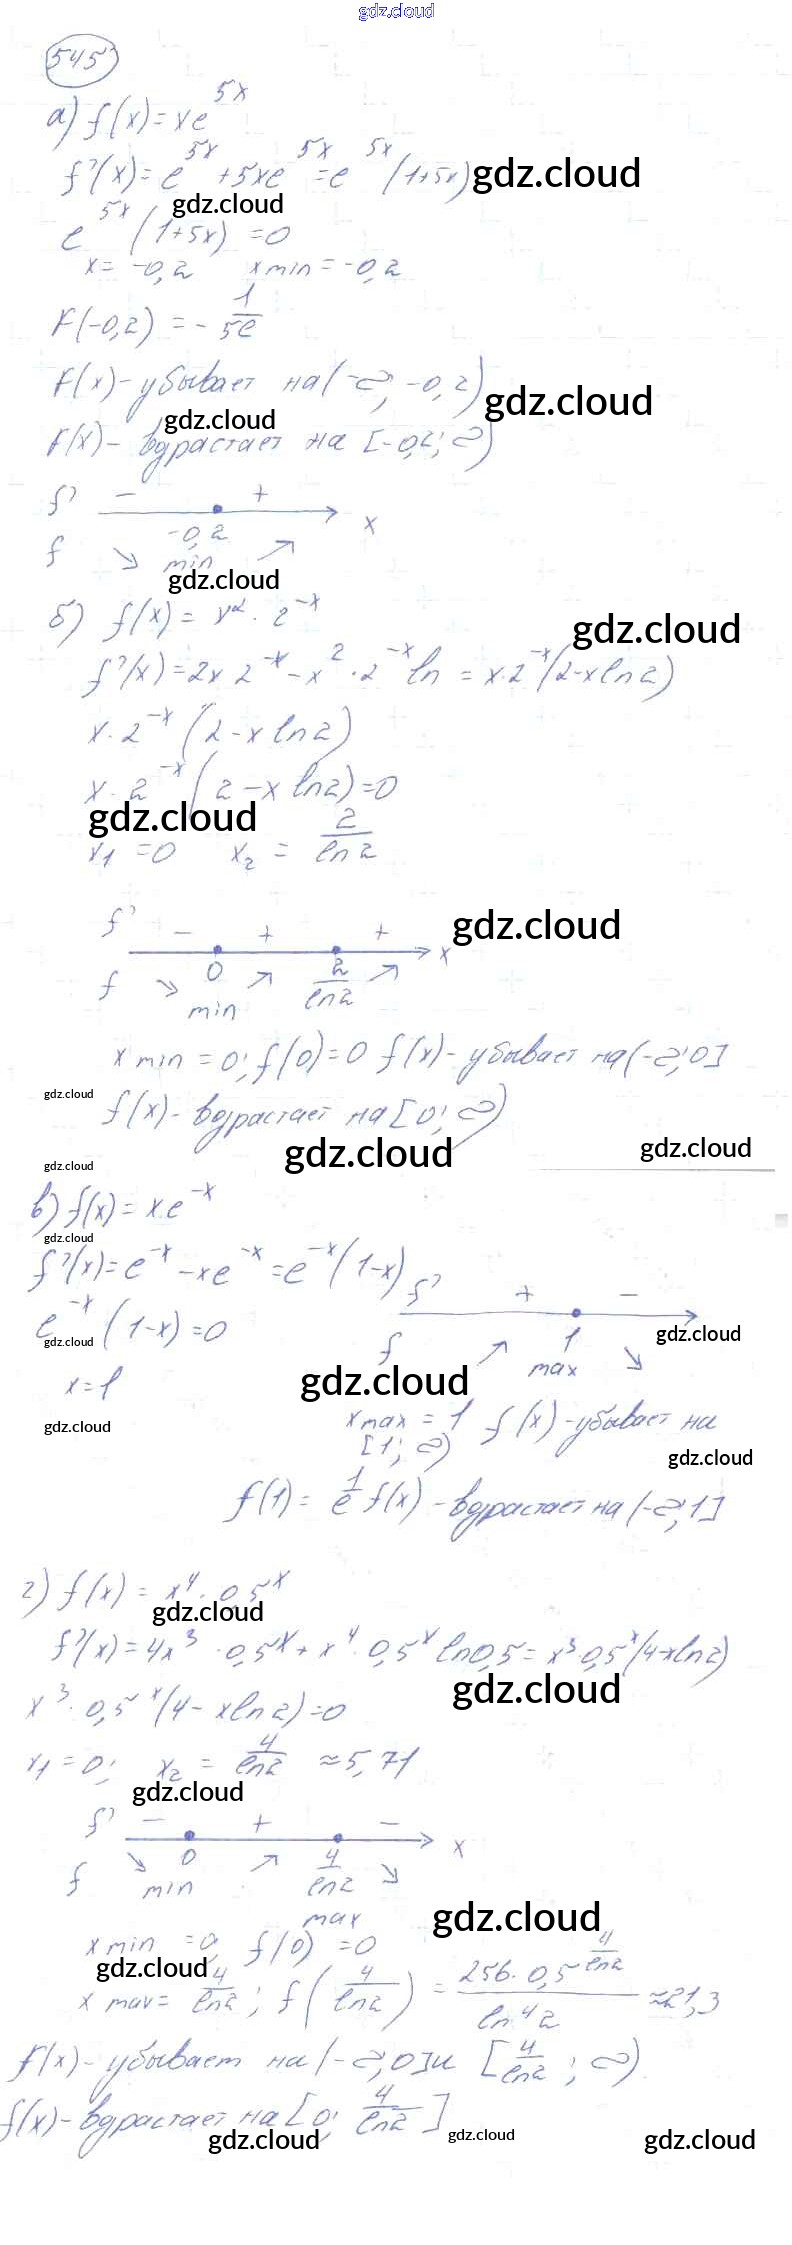 gdz.cloud
545
а) f(x) = xe^{5x}
f'(x) = e^{5x} + 5xe^{5x} = e^{5x}(1+5x) gdz.cloud
gdz.cloud
e^{5x}(1+5x) = 0
x = -0,2 x min = -0,2
F(-0,2) = - 1/5e
F(x) - убывает на (-∞; -0,2) gdz.cloud
gdz.cloud
F(x) - вдрастает на [-0,2; ∞)
f' - + 
-0,2 x
f ↘ min ↗
gdz.cloud
б) f(x) = x^2 · 2^{-x} gdz.cloud
f'(x) = 2x 2^{-x} - x^2 · 2^{-x} ln = x·2^{-x}(2-x ln 2)
x · 2^{-x}(2 - x ln 2)
x · 2^{-x}(2 - x ln2) = 0
gdz.cloud
x1 = 0 x2 = 2/ln 2
f' - + + gdz.cloud
0 2/ln2 x
f ↘ min ↗ ↗
x min = 0; f(0) = 0 f(x) - убывает на (-∞; 0]
gdz.cloud
f(x) - вдрастает на [0; ∞)
gdz.cloud gdz.cloud gdz.cloud
в) f(x) = x·e^{-x}
gdz.cloud
f'(x) = e^{-x} - xe^{-x} = e^{-x}(1-x)
f' + -
e^{-x}(1-x) = 0
gdz.cloud gdz.cloud
f ↗ 1 max ↘
x = 1 gdz.cloud
gdz.cloud
xmax = 1 f(x) - убывает на
[1; ∞) gdz.cloud
f(1) = 1/e f(x) - вдрастает на (-∞; 1]
г) f(x) = x^4 · 0,5^x
gdz.cloud
f'(x) = 4x^3 · 0,5^x + x^4 · 0,5^x ln0,5 = x^3 0,5^x(4-xln2)
gdz.cloud
x^3 · 0,5^x(4 - xln 2) = 0
x1 = 0; x2 = 4/ln2 ≈ 5,71
gdz.cloud
f' - + -
0 4/ln2 x
f ↘ min ↗ max ↘
gdz.cloud
x min = 0; f(0) = 0
gdz.cloud
x max = 4/ln2; f(4/ln2) = 256·0,5^{4/ln2}/ln^4 2 ≈ 21,3
f(x) - убывает на (-∞; 0] и [4/ln2; ∞)
f(x) - вдрастает на [0; 4/ln2]
gdz.cloud gdz.cloud gdz.cloud